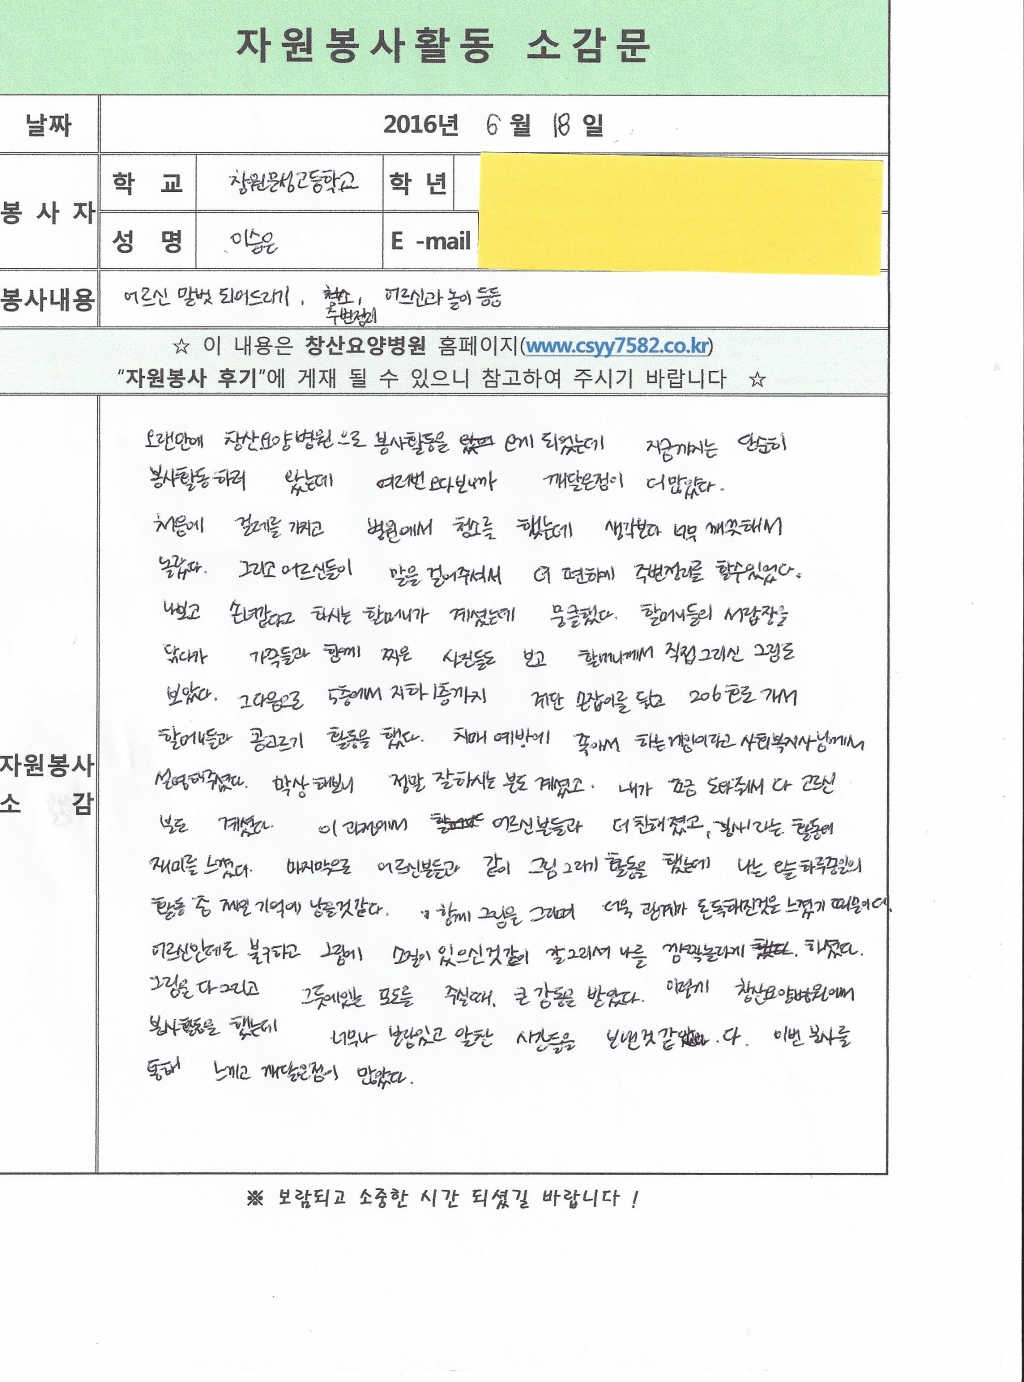 자원봉사활동 소감문
날짜 2016년 6월 18일
봉사자
학 교 창원문성고등학교 학 년
성 명 이승은 E -mail
봉사내용 어르신 말벗 되어드리기, 청소, 어르신과 놀이 등등
주변정리
☆ 이 내용은 창산요양병원 홈페이지(www.csyy7582.co.kr)
"자원봉사 후기"에 게재 될 수 있으니 참고하여 주시기 바랍니다 ☆
자원봉사
소 감
오랜만에 창산요양병원으로 봉사활동을 오게 되었는데 지금까지는 단순히
봉사활동하러 왔는데 여러번 오다보니까 깨달은점이 더 많았다.
처음에 걸레를 가지고 병원에서 청소를 했는데 생각보다 너무 깨끗해서
놀랐다. 그리고 어르신들이 말을 걸어주셔서 더 편하게 주변정리를 할수있었다.
나보고 손녀같다고 하시는 할머니가 계셨는데 뭉클했다. 할머니들의 서랍장을
닦다가 가족들과 함께 찍은 사진들도 보고 할머니께서 직접 그리신 그림도
보았다. 그다음으로 5층에서 지하1층까지 계단 손잡이를 닦고 206호로 가서
할머니들과 콩고르기 활동을 했다. 치매 예방에 좋아서 하는게임이라고 사회복지사님께서
설명해주셨다. 막상 해보니 정말 잘하시는 분도 계셨고. 내가 조금 도와줘서 다 고르신
분도 계셨다. 이 과정에서 어르신분들과 더 친해졌고, 봉사라는 활동에
재미를 느꼈다. 마지막으로 어르신분들과 같이 그림 그리기 활동을 했는데 나는 오늘 하루종일의
활동 중 제일 기억에 남을것같다. 함께 그림을 그리며 더욱 관계가 돈독해진것을 느꼈기 때문이다.
어르신인데도 불구하고 그림에 소질이 있으신것같이 잘그리셔서 나를 깜짝놀라게 하셨다.
그림을 다 그리고 그릇에있는 포도를 주실때, 큰 감동을 받았다. 이렇게 창산요양병원에서
봉사활동을 했는데 너무나 보람있고 알찬 시간들을 보낸것 같다. 이번 봉사를
통해 느끼고 깨달은점이 많았다.
※ 보람되고 소중한 시간 되셨길 바랍니다 !